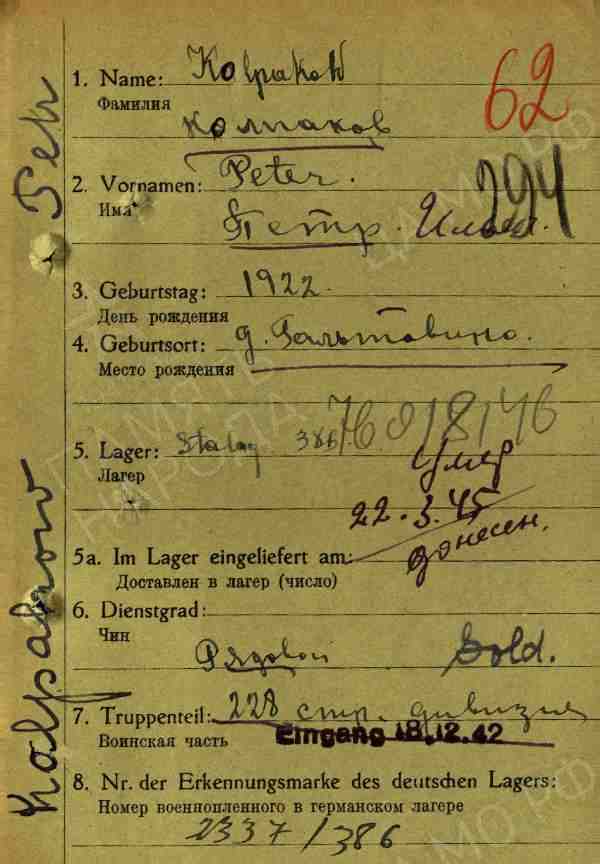 1. Name: Kolpakow
Фамилия
Колпаков
62
2. Vornamen: Peter.
294
Имя
Петр.
3. Geburtstag: 1922.
День рождения
4. Geburtsort: д.
Место рождения
5. Lager: Stalag 386
Лагер
Умер
22.3.45
донесен.
5a. Im Lager eingeliefert am:
Доставлен в лагер (число)
6. Dienstgrad:
Чин
Рядовой Sold.
7. Truppenteil: 228 стр. дивизия
Воинская часть
Eingang 18.12.42
8. Nr. der Erkennungsmarke des deutschen Lagers:
Номер военнопленного в германском лагере
2337/386